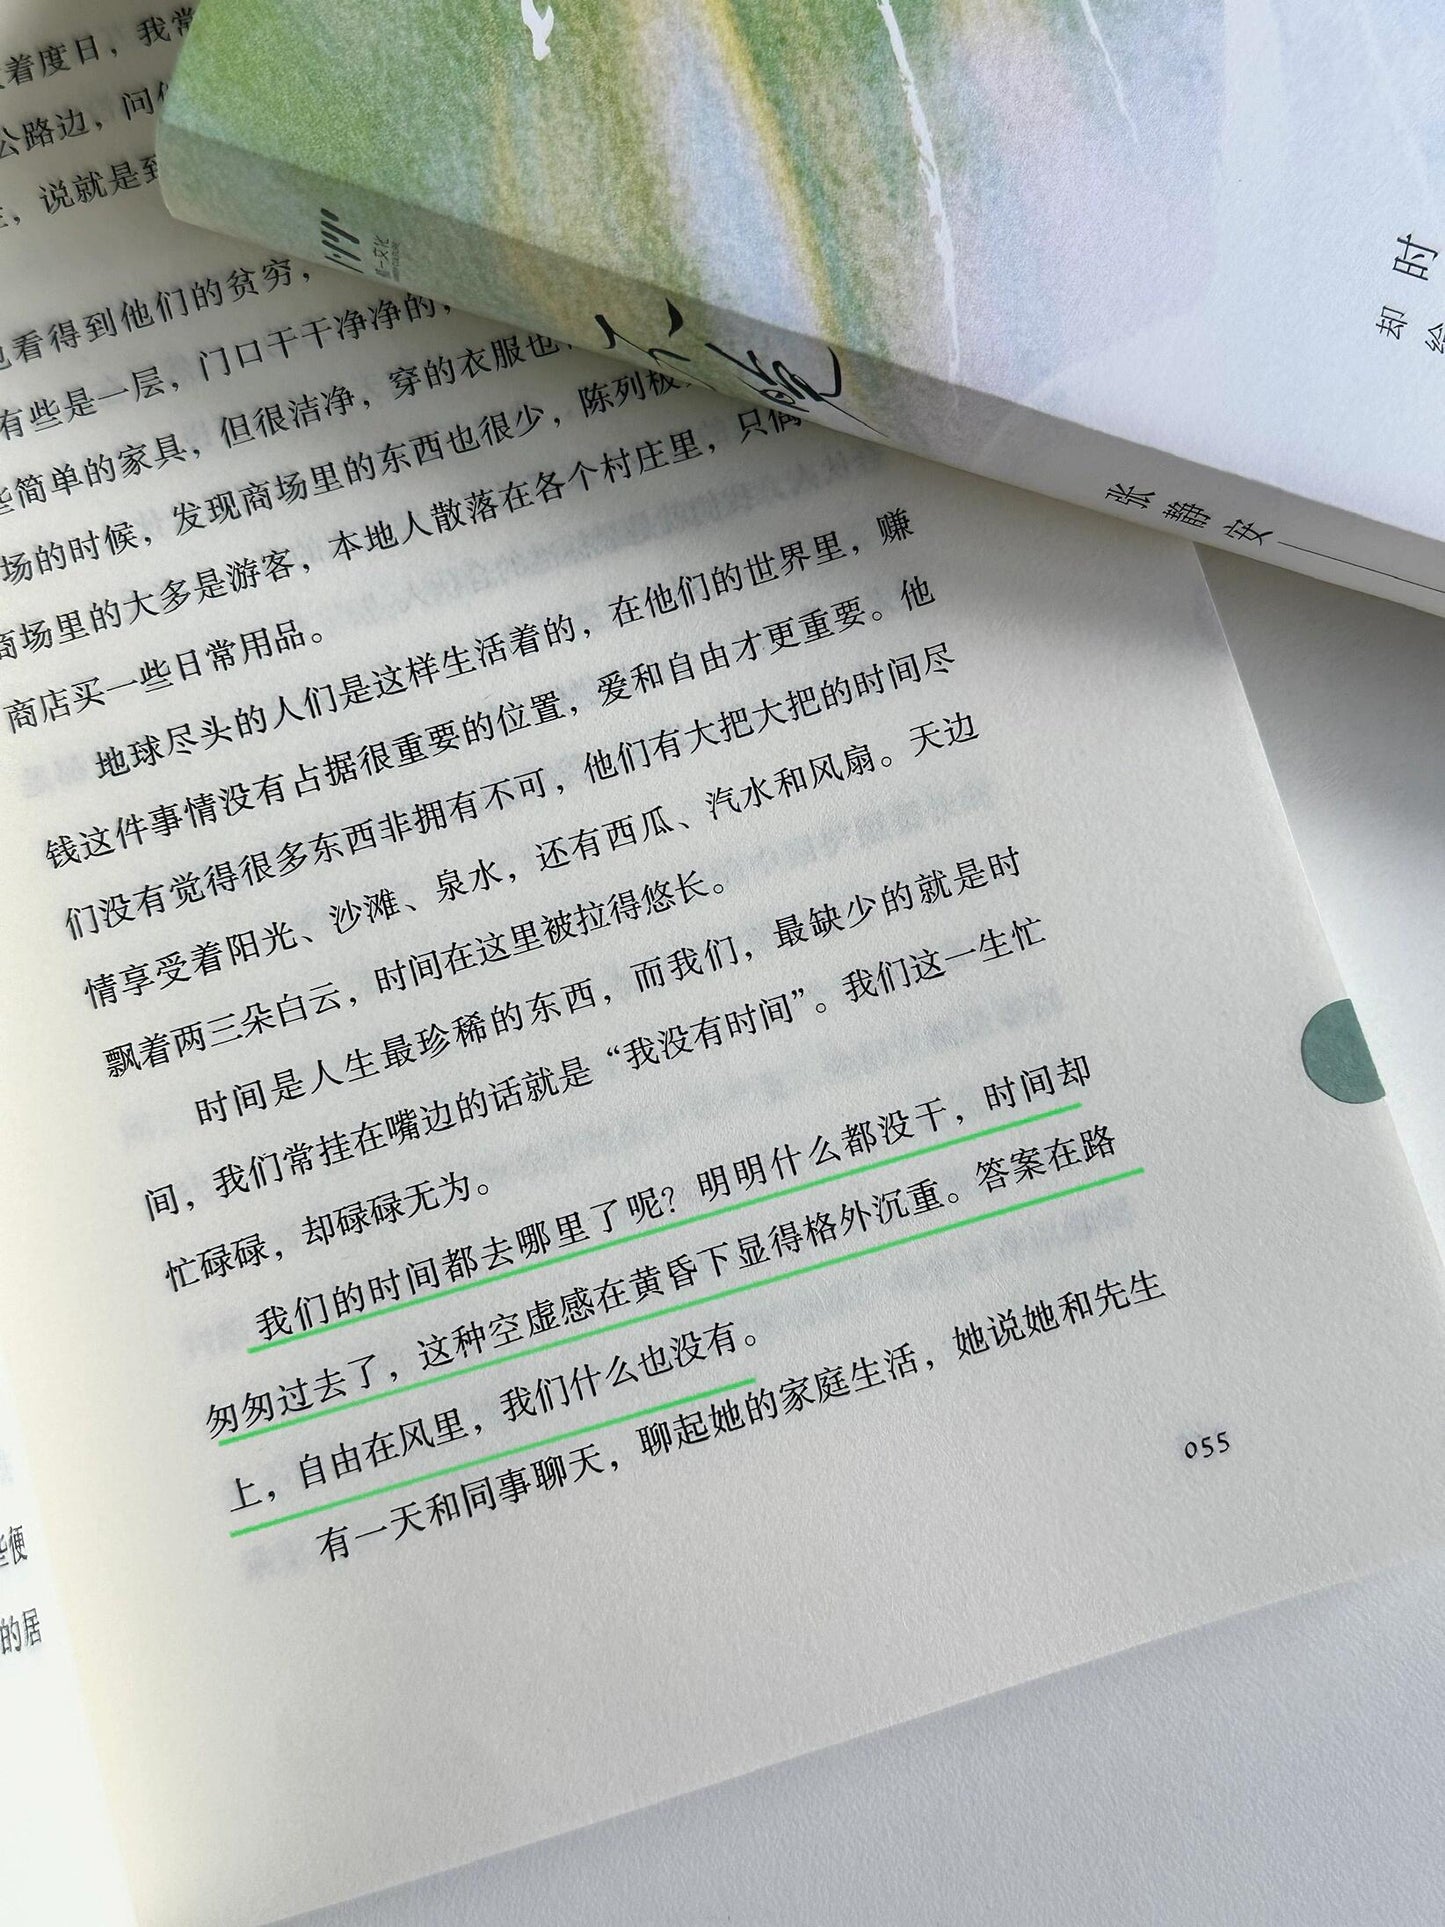 着度日，我常
公路边，问
，说就是到
看得到他们的贫穷，
有些是一层，门口干干净净的，
些简单的家具，但很洁净，穿的衣服也
场的时候，发现商场里的东西也很少，陈列板
商场里的大多是游客，本地人散落在各个村庄里，只偶
商店买一些日常用品。
地球尽头的人们是这样生活着的，在他们的世界里，赚
钱这件事情没有占据很重要的位置，爱和自由才更重要。他
们没有觉得很多东西非拥有不可，他们有大把大把的时间尽
情享受着阳光、沙滩、泉水，还有西瓜、汽水和风扇。天边
飘着两三朵白云，时间在这里被拉得悠长。
时间是人生最珍稀的东西，而我们，最缺少的就是时
间，我们常挂在嘴边的话就是“我没有时间”。我们这一生忙
忙碌碌，却碌碌无为。
我们的时间都去哪里了呢？明明什么都没干，时间却
匆匆过去了，这种空虚感在黄昏下显得格外沉重。答案在路
上，自由在风里，我们什么也没有。
有一天和同事聊天，聊起她的家庭生活，她说她和先生
055
些便
的居
时
却
给
张静安